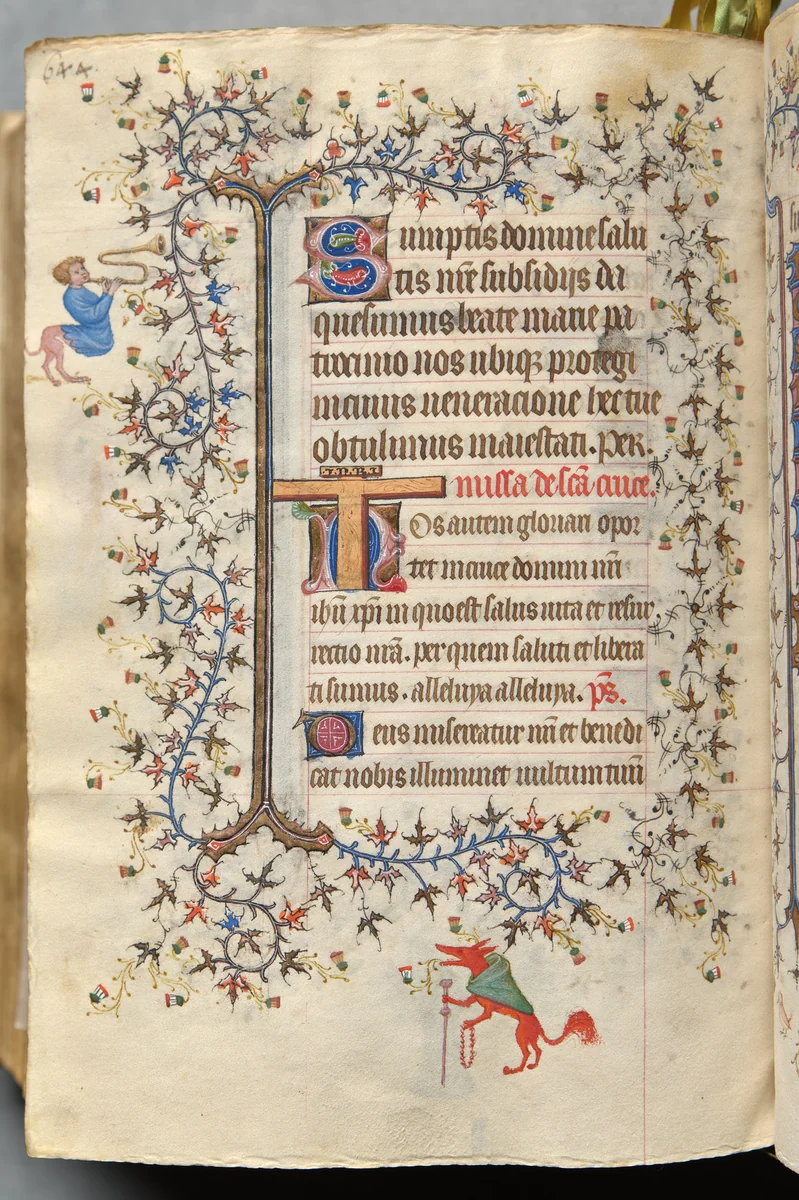 644.
Sumptis domine salu
tis nr̄e subsidijs da
quesumus beate marie pa
trocinio nos ubiqꝫ protegi
in cuius ueneracione hec tue
obtulimus maiestati. Per.
missa de sc̄a cruce.
Nos autem gloriari opor
tet in cruce domini nr̄i
ih̄u xp̄i in quo est salus uita et resur
rectio nr̄a. per quem saluti et libera
ti sumus. alleluya alleluya. p̄s.
Deus misereatur nr̄i et benedi
cat nobis illuminet uultum suū